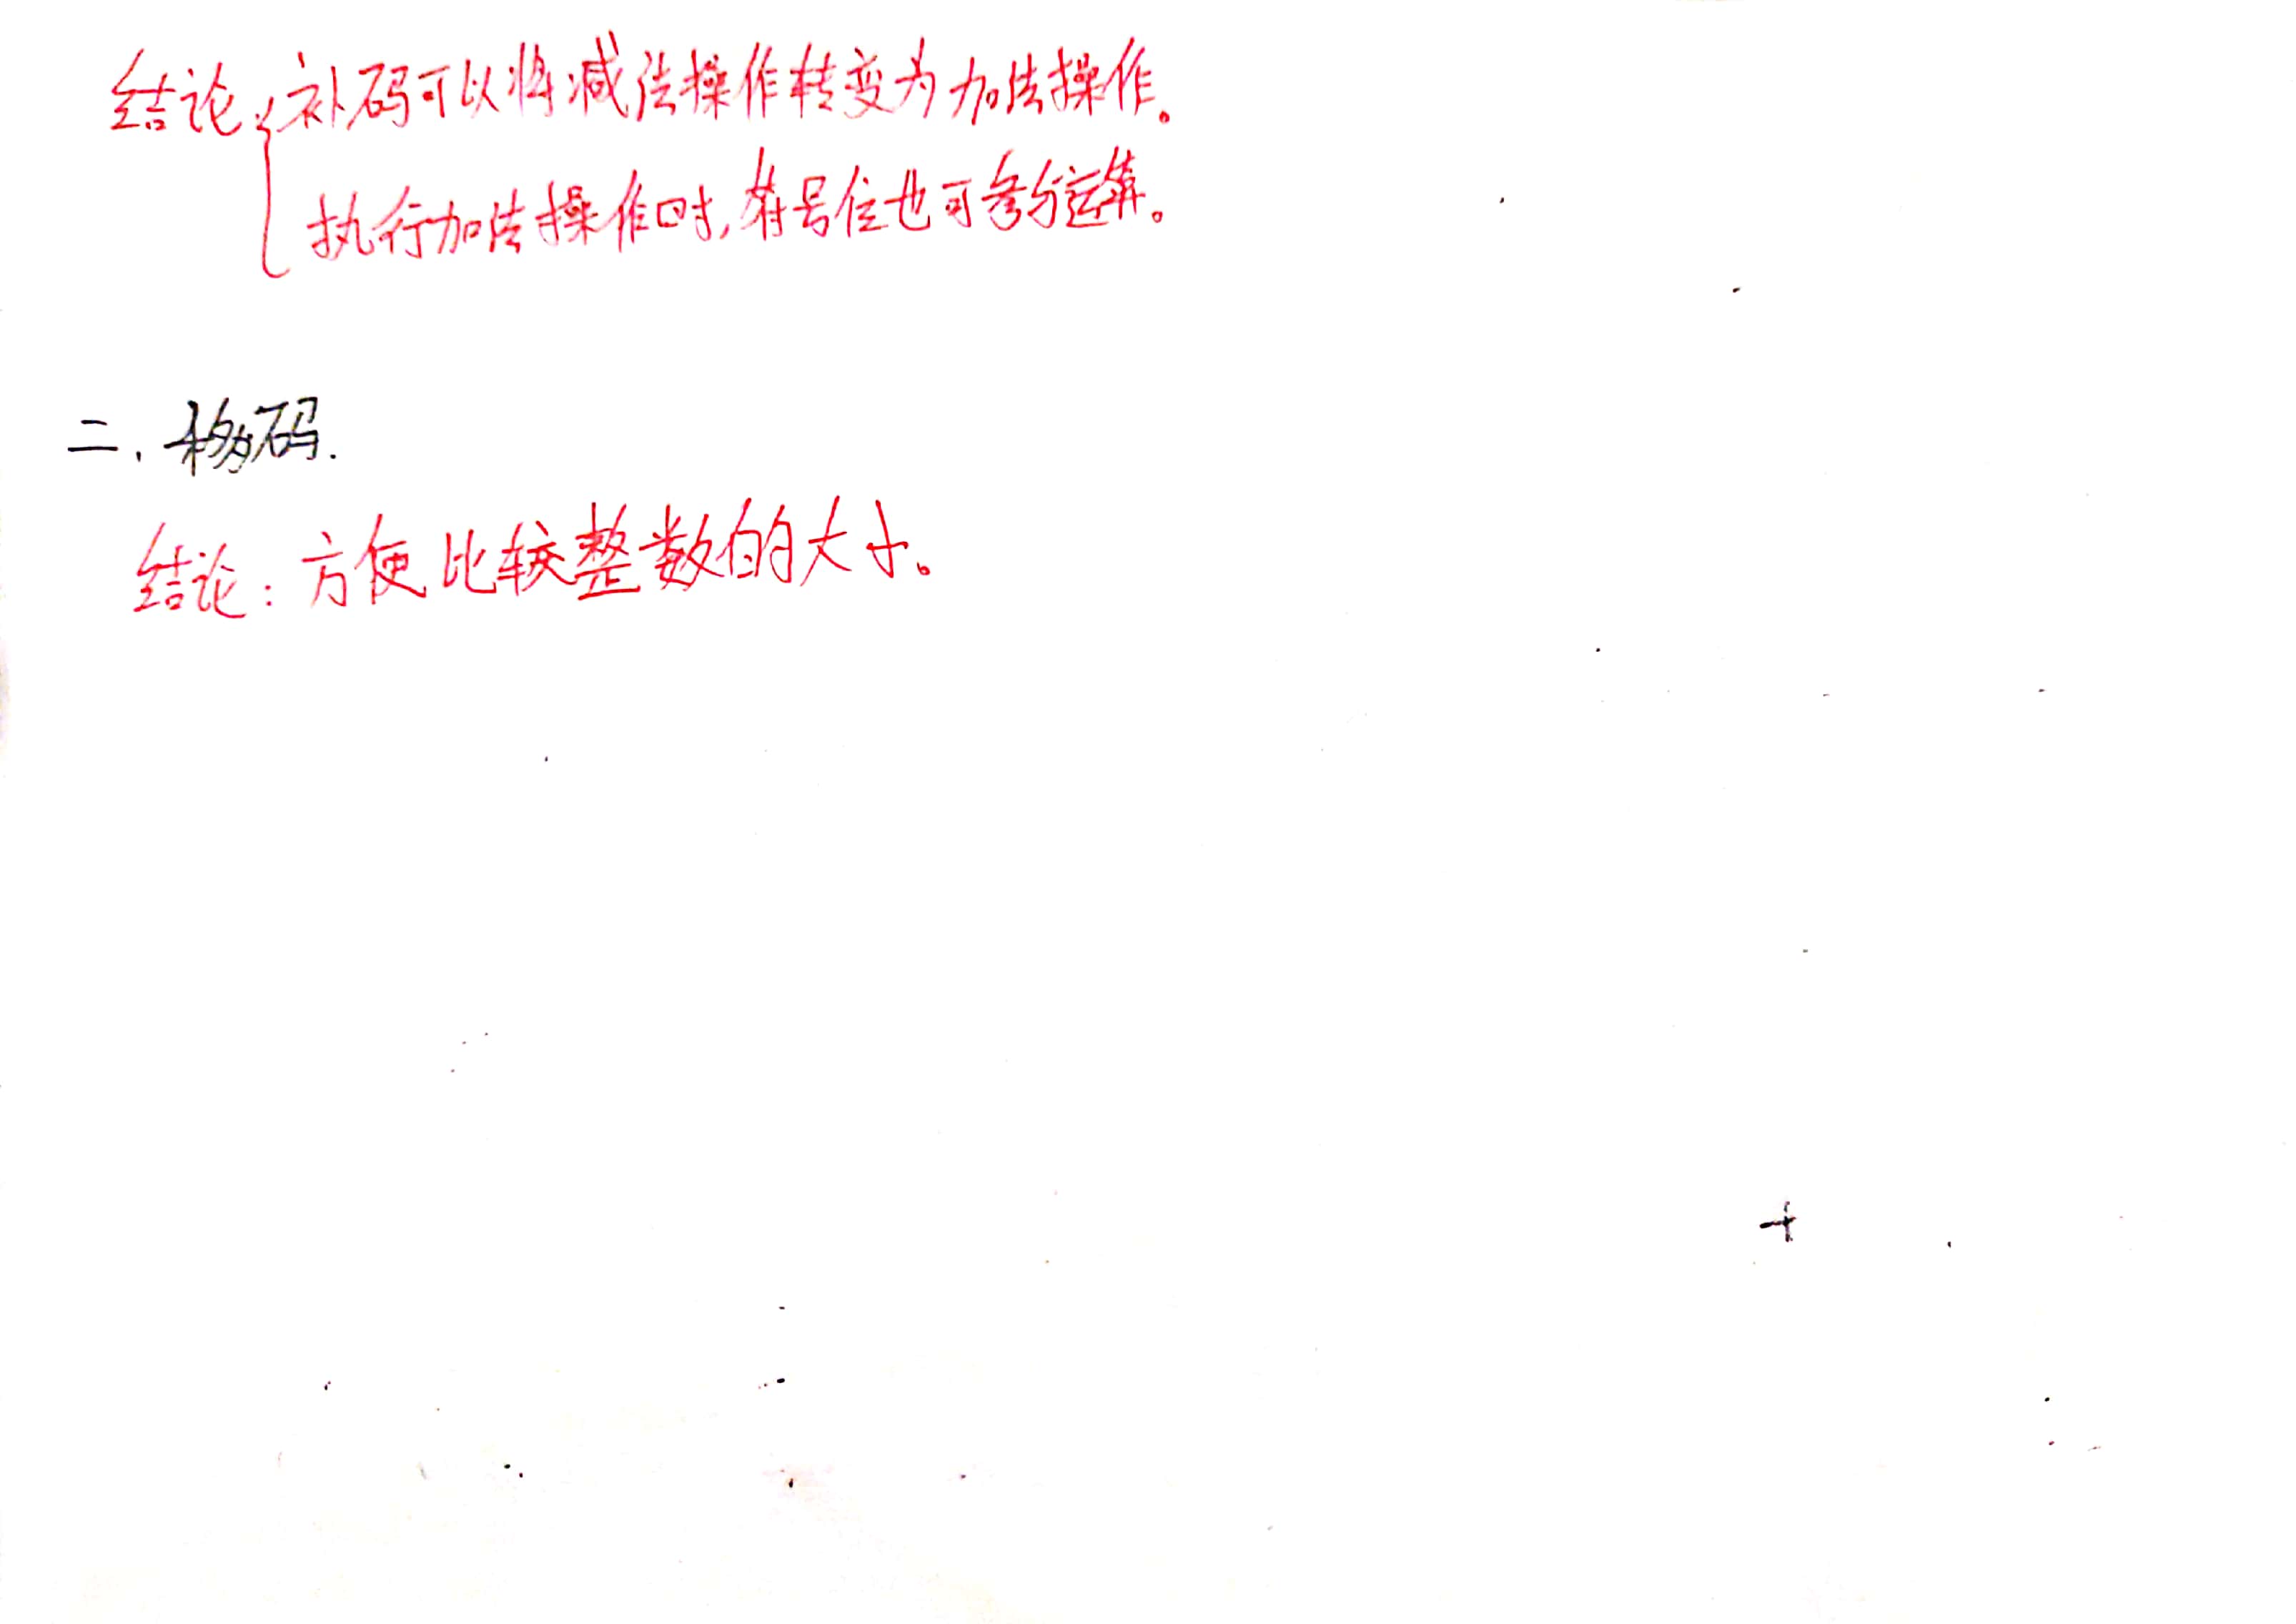 结论:补码可以将减法操作转变为加法操作。
执行加法操作时,符号位也可参与运算。
二、移码.
结论:方便比较整数的大小。